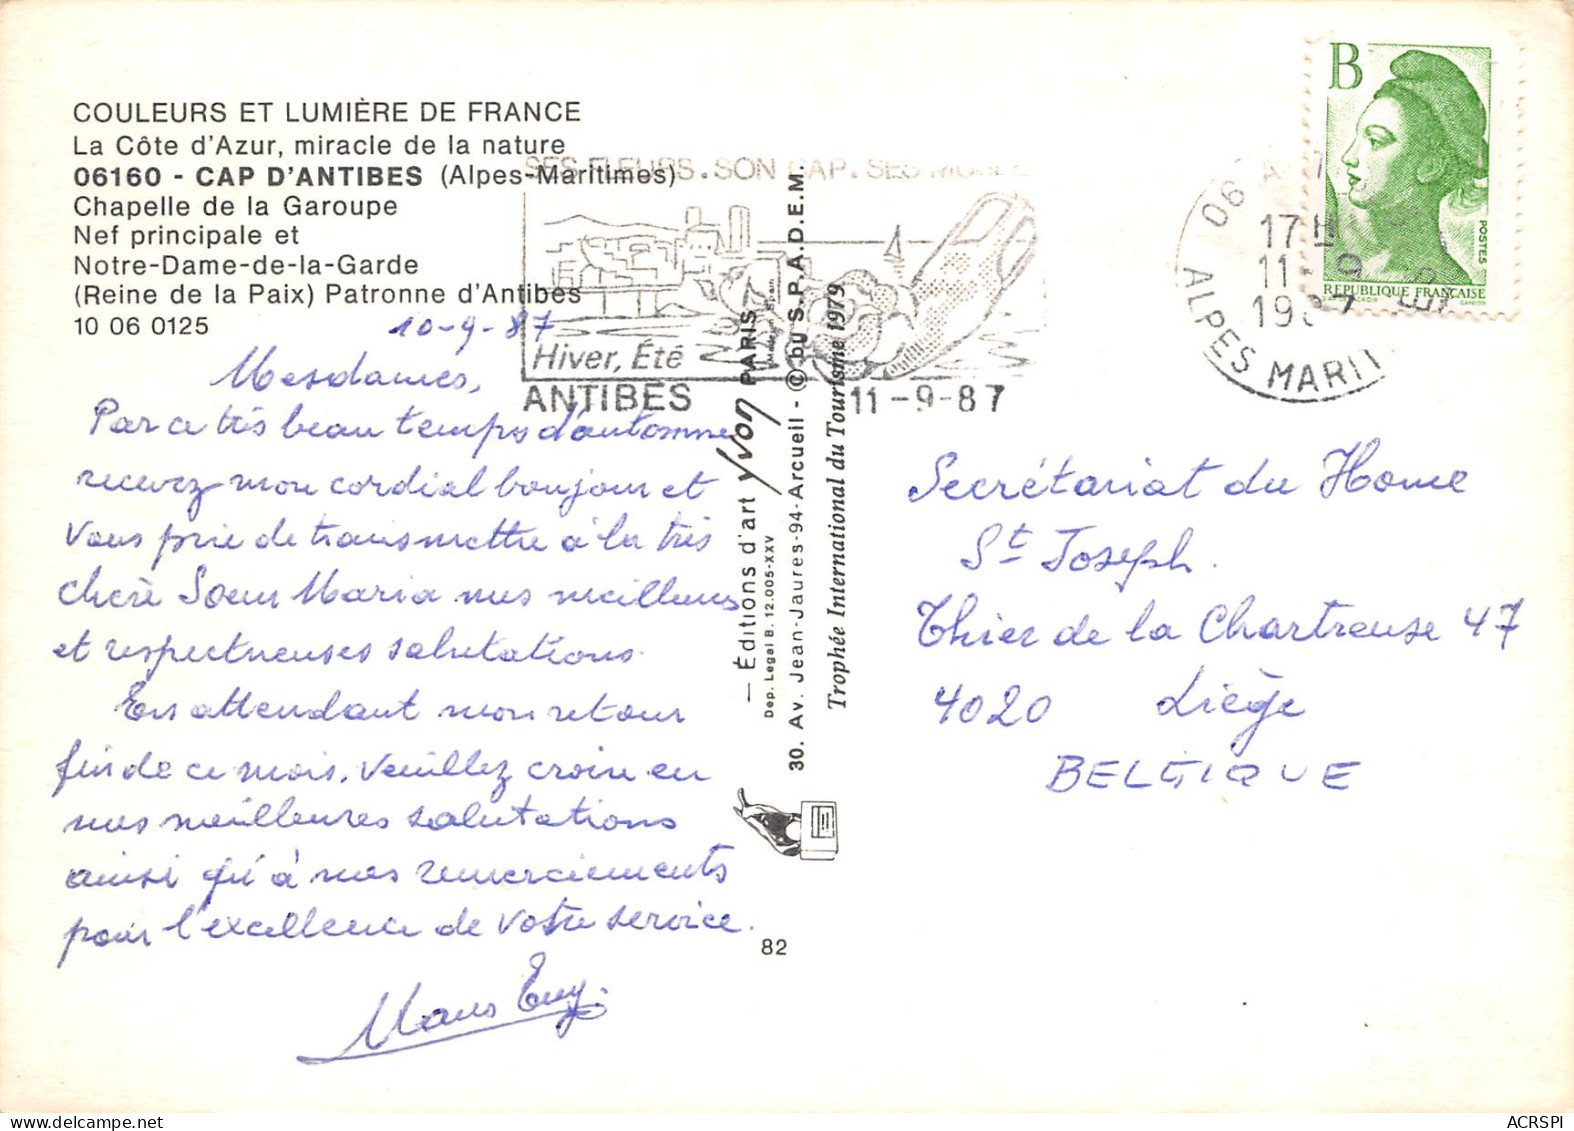 COULEURS ET LUMIÈRE DE FRANCE
La Côte d'Azur, miracle de la nature
06160 - CAP D'ANTIBES (Alpes-Maritimes)
Chapelle de la Garoupe
Nef principale et
Notre-Dame-de-la-Garde
(Reine de la Paix) Patronne d'Antibes
10 06 0125
10-9-87
Mesdames,
Par ce très beau temps d'automne
recevez mon cordial bonjour et
vous prie de transmettre à la très
chère Soeur Maria mes meilleures
et respectueuses salutations.
En attendant mon retour
fin de ce mois, veuillez croire en
mes meilleures salutations
ainsi qu'à mes remerciements
pour l'excellence de votre service.
SES FLEURS. SON CAP. SES
Hiver, Été
ANTIBES
11-9-87
— Éditions d'art Yvon PARIS
Dep. Legal B. 12.005-XXV
30. Av. Jean-Jaures-94-Arcueil - © bu S.P.A.D.E.M.
Trophée International du Tourisme 1979
82
B
POSTES
REPUBLIQUE FRANÇAISE
06
17 H
11-9
1987
ALPES MARIT
Secrétariat du Home
St Joseph.
Thier de la Chartreuse 47
4020 Liège
BELGIQUE
ACRSPI